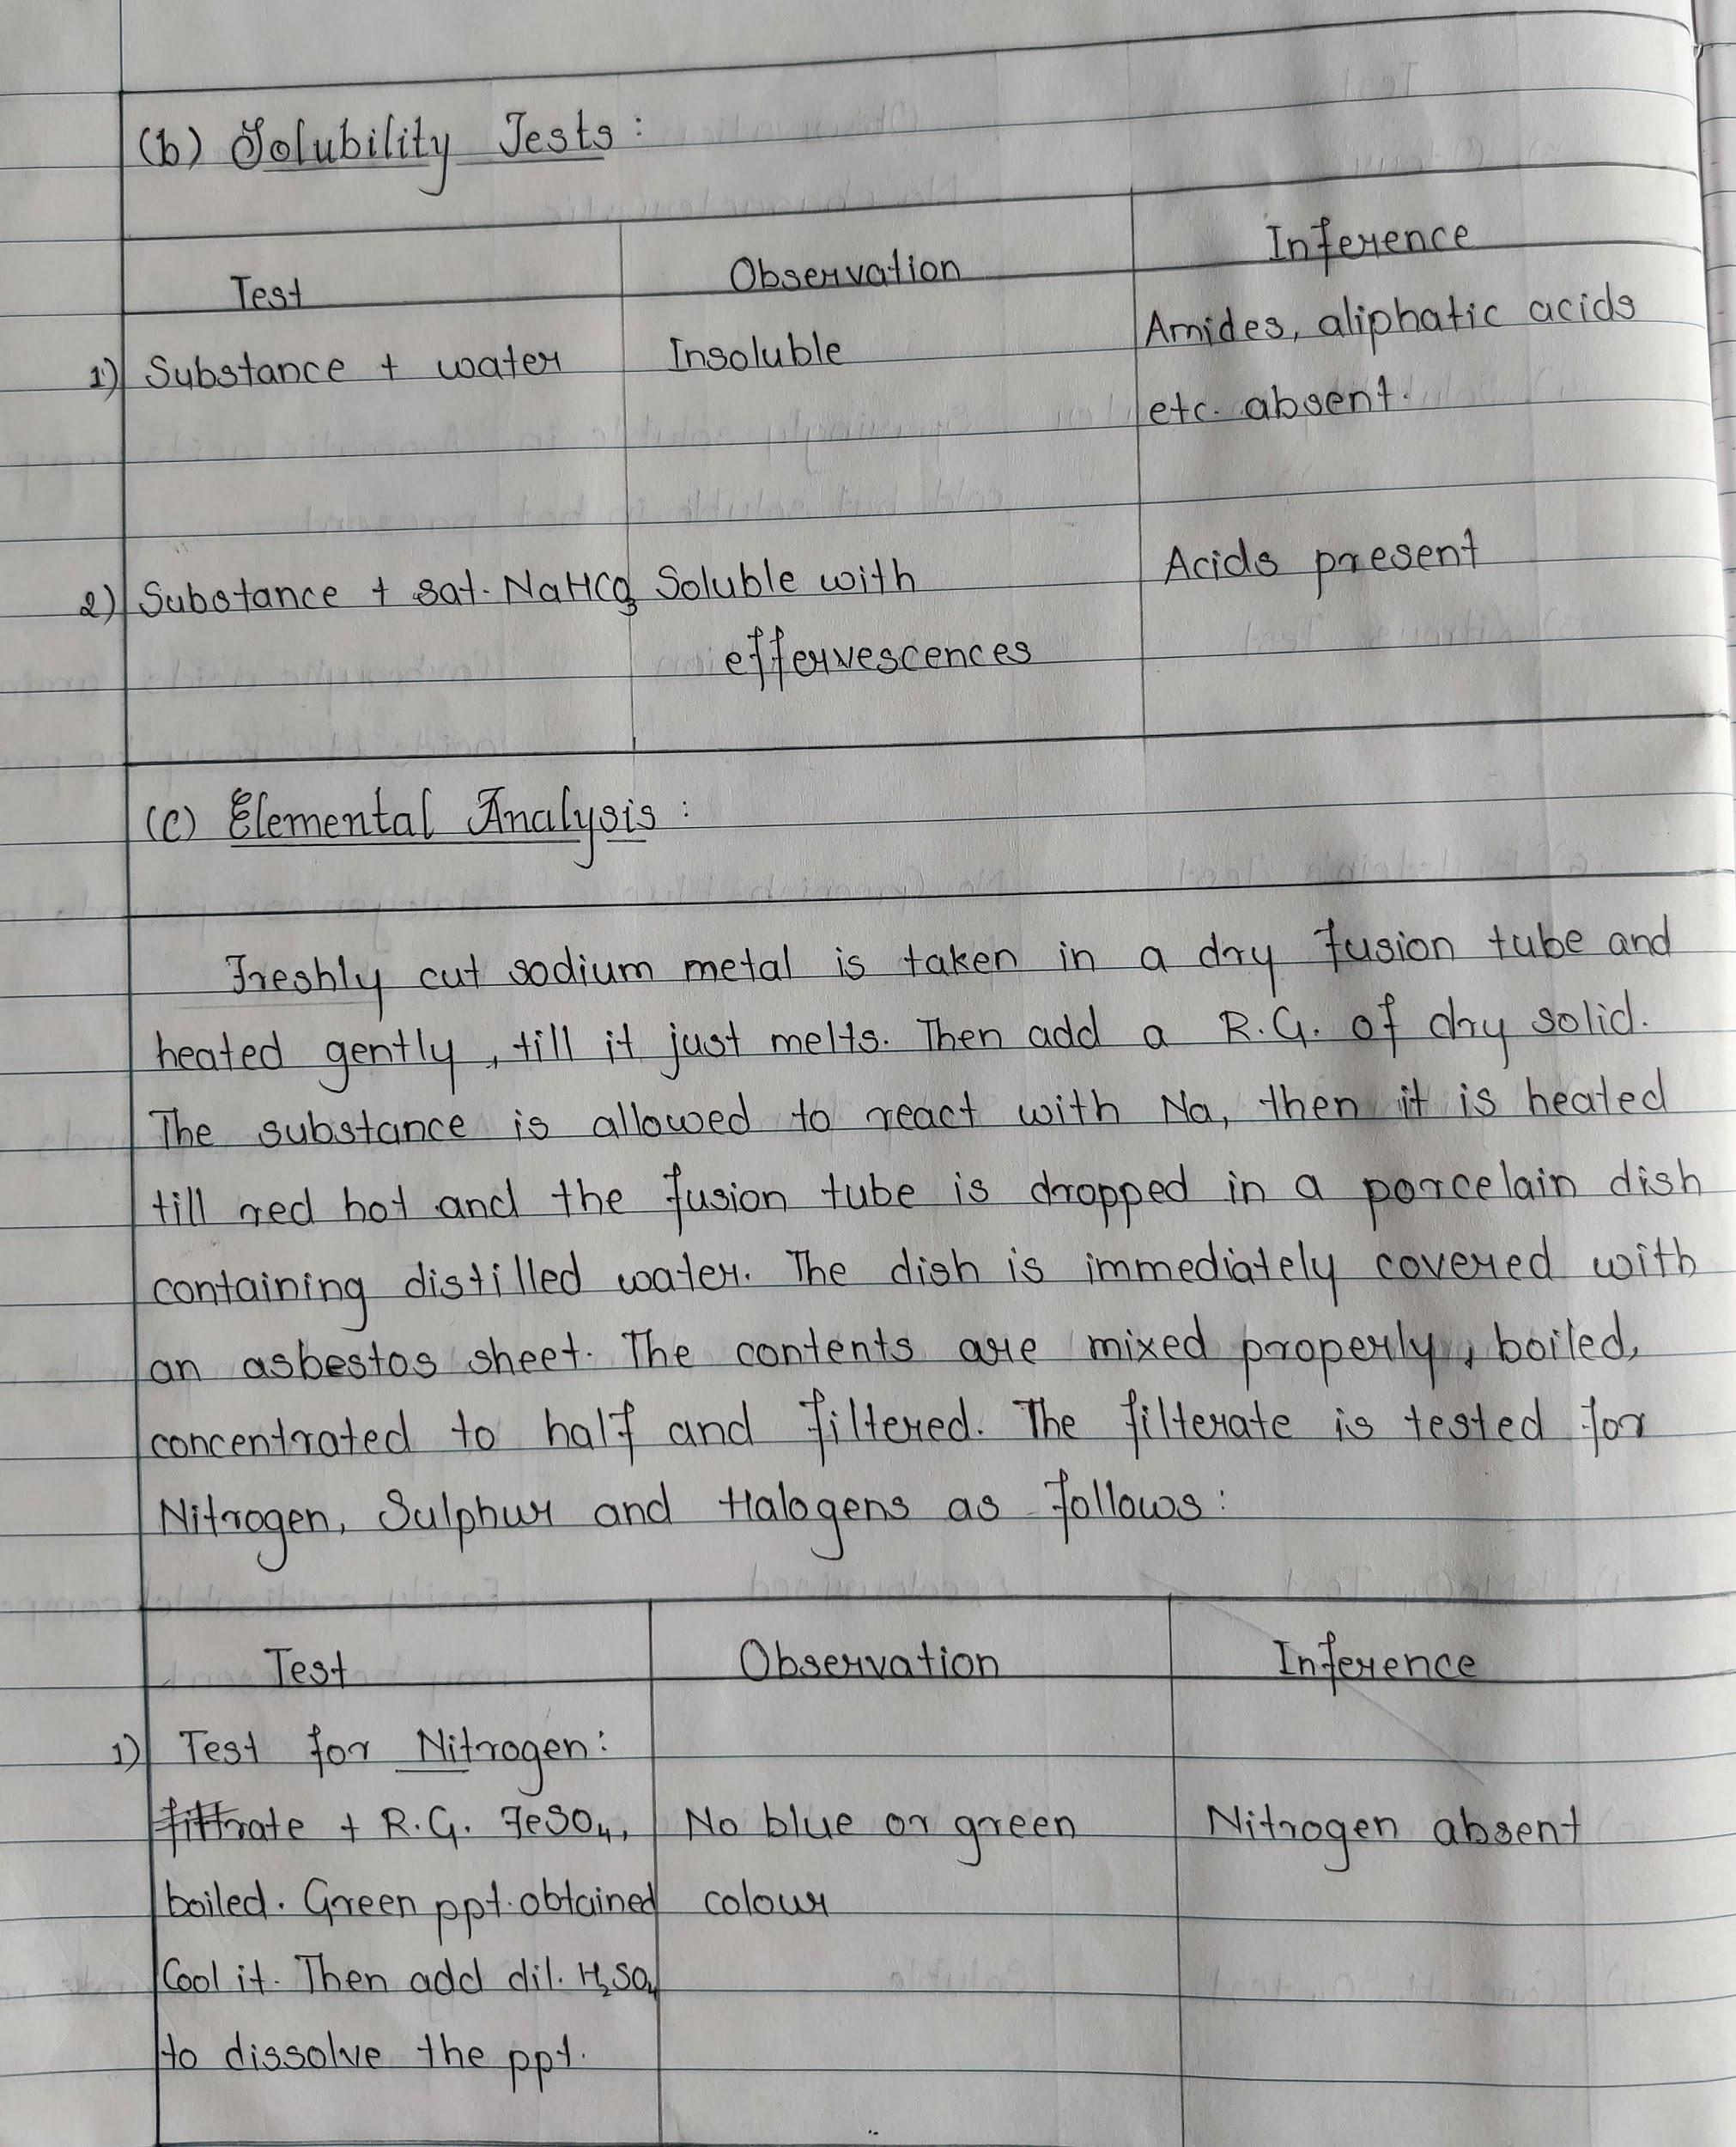 (b) Solubility Tests :
Test Observation Inference
1) Substance + water Insoluble Amides, aliphatic acids
etc. absent.
2) Substance + sat. NaHCO3 Soluble with Acids present
effervescences
(c) Elemental Analysis :
Freshly cut sodium metal is taken in a dry fusion tube and
heated gently, till it just melts. Then add a R.G. of dry solid.
The substance is allowed to react with Na, then it is heated
till red hot and the fusion tube is dropped in a porcelain dish
containing distilled water. The dish is immediately covered with
an asbestos sheet. The contents are mixed properly, boiled,
concentrated to half and filtered. The filterate is tested for
Nitrogen, Sulphur and Halogens as follows:
Test Observation Inference
1) Test for Nitrogen:
filtrate + R.G. FeSO4, No blue or green Nitrogen absent
boiled. Green ppt. obtained colour
Cool it. Then add dil. H2SO4
to dissolve the ppt.